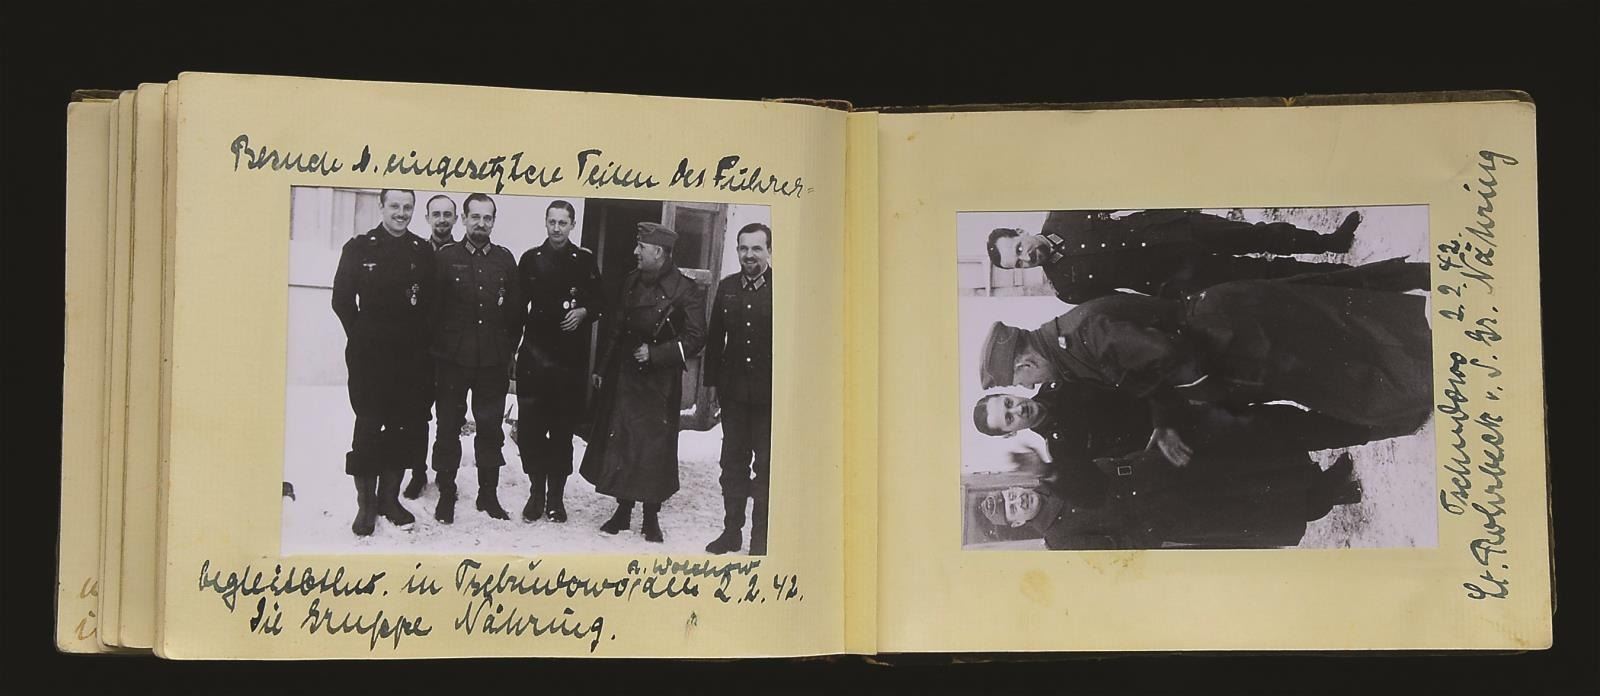 Besuch b. eingesetzten Teilen des Führer=
begleitbtlns. in Tschudowo
a. Wolchow
2.2.42.
Die Gruppe Nähring.
Tschudowo 2.2.42.
Lt. Rohrbeck v. d. Gr. Nähring